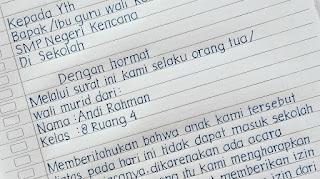 Kepada Yth
Bapak /Ibu guru wali
SMP Negeri Kencana
Di Sekolah
Dengan hormat
Melalui surat ini kami selaku orang tua/
wali murid dari:
Nama : Andi Rahman
Kelas : 8 Ruang 4
Memberitahukan bahwa anak kami tersebut
pada hari ini tidak dapat masuk sekolah
dikarenakan ada acara
itu kami mengharapkan
memberikan izin
dari